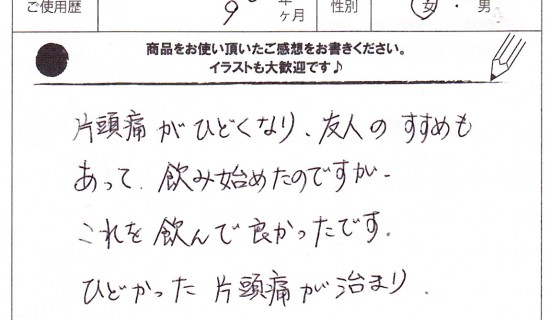 ご使用歴 9 年 ヶ月 性別 女 ・ 男
商品をお使い頂いたご感想をお書きください。
イラストも大歓迎です♪
片頭痛がひどくなり、友人のすすめも
あって、飲み始めたのですが、
これを飲んで良かったです。
ひどかった片頭痛が治まり、